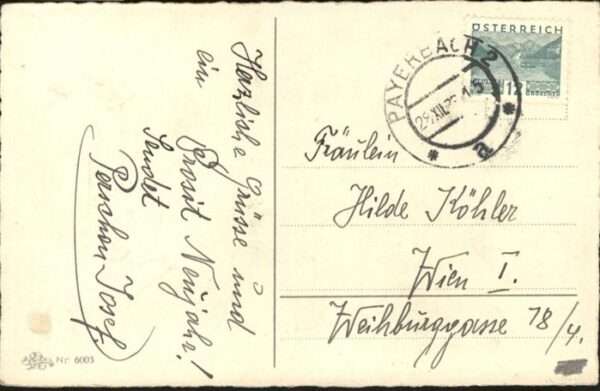 Herzliche Grüsse und
ein Prosit Neujahr!
sendet
Josef
Nr. 6003
ÖSTERREICH
12
PAYERBACH 2
29.XII.
a
Fräulein
Hilde Köhler
Wien I.
Weihburggasse 18/4.